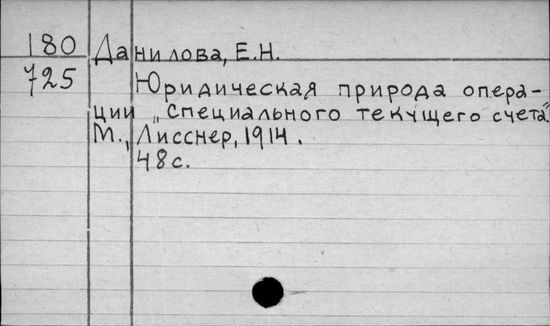 180 Данилова, Е.Н.
725 Юридическая природа опера-
ции „Специального текущего счета".
М., Лисснер, 1914.
48с.